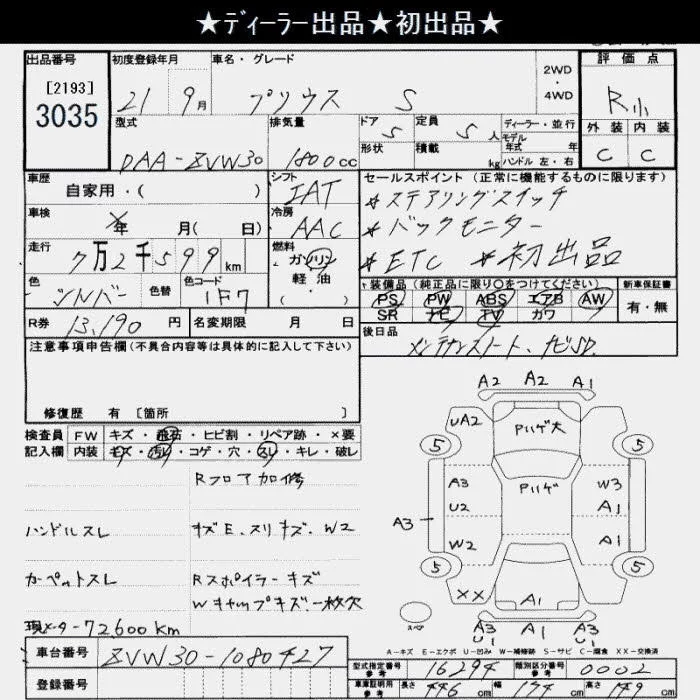 ★ディーラー出品★初出品★
出品番号
[2193]
3035
初度登録年月
21 9月
車名・グレード
プリウス S
2WD
・
4WD
評価点
R
外装 内装
C C
型式
DAA-ZVW30
排気量
1800cc
ドア 5
形状
定員 5人
積載 kg
ディーラー・並行
モデル年式 年
ハンドル左・右
車歴
自家用・( )
シフト
IAT
セールスポイント(正常に機能するものに限ります)
*ステアリングスイッチ
*バックモニター
*ETC *初出品
車検
年 月( 日)
冷房
AAC
走行
7万2千599km
燃料
ガソリン
軽油
( ・ )
色
シルバー
色替
色コード
1F7
装備品(純正品に限り○をつけてください)
PS PW ABS エアB AW
SR ナビ TV カワ
新車保証書
有・無
R券 13,190円
名変期限 月 日
後日品
メンテナンスノート、ナビSD.
注意事項申告欄(不具合内容等は具体的に記入して下さい)
修復歴 有 [箇所 ]
検査員記入欄
FW キズ・飛石・ヒビ割・リペア跡・×要
内装 キズ・汚れ・コゲ・穴・スレ・キレ・破レ
Rフロア加修
ハンドルスレ
キズE、スリキズ、W2
カーペットスレ
Rスポイラーキズ
Wキャップキズ・一枚欠
現メーター72600km
A2 A2 A1
UA2 Pハゲ大
5 5
A3 Pハゲ W3
U2 A1
A3
W2 A1
5 5
XX A1
スペア
A3 U1 A1 A3 U1
A-キズ E-エクボ U-凹み W-補修跡 S-サビ C-腐食 XX-交換済
車台番号
ZVW30-1080427
登録番号
型式指定番号 参考
16294
類別区分番号 参考
0002
車庫証明用 参考
長さ 446cm 幅 174cm 高さ 149cm